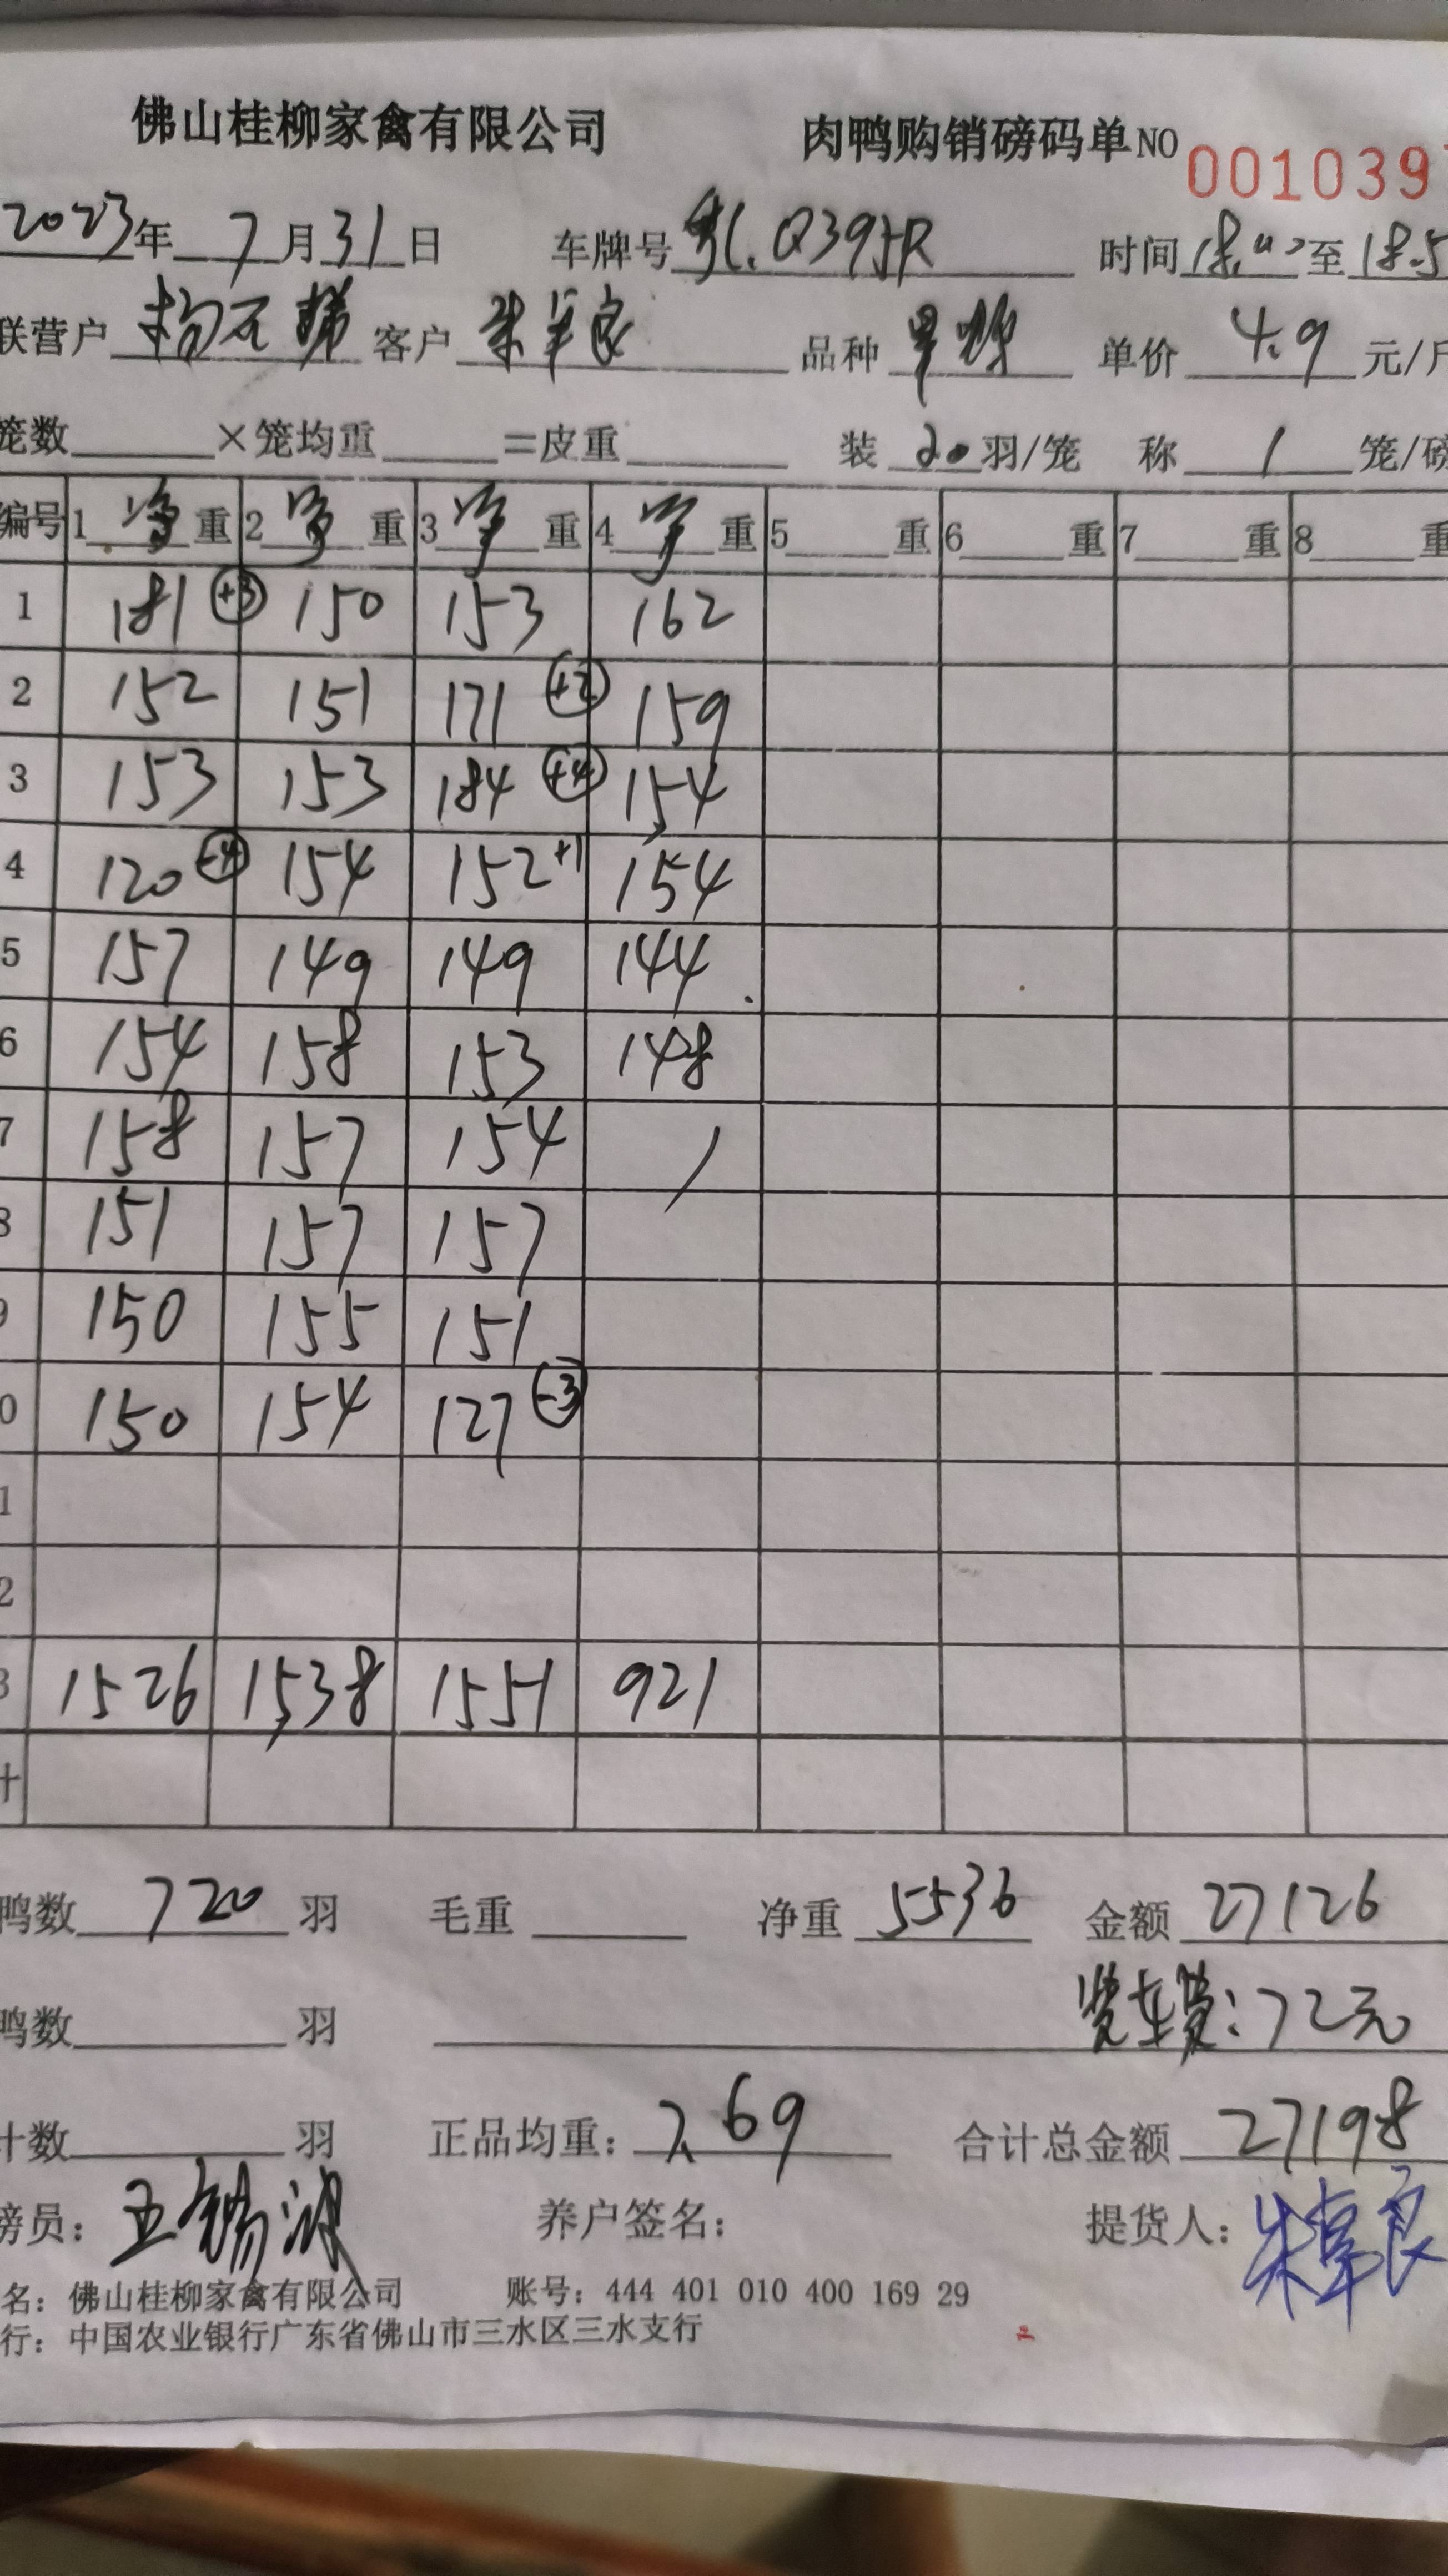 佛山桂柳家禽有限公司 肉鸭购销磅码单NO 001039
2023年 7月31日 车牌号 Q395R 时间 至 18.5
联营户 杨 客户 朱 良 品种 单价 4.9 元/斤
笼数 ×笼均重 =皮重 装 20 羽/笼 称 1 笼/磅
编号 1 净 重 2 净 重 3 净 重 4 净 重 5 重 6 重 7 重 8 重
1 181 +3 150 153 162
2 152 151 171 +2 159
3 153 153 184 +4 154
4 120 -4 154 152 +1 154
5 157 149 149 144
6 154 158 153 148
7 158 157 154 /
8 151 157 157
9 150 155 151
0 150 154 127 -3
1
2
3 1526 1538 1551 921
计
鸭数 720 羽 毛重 净重 5536 金额 27126
鸭数 羽 装车费:72元
计数 羽 正品均重: 7.69 合计总金额 27198
磅员: 养户签名: 提货人: 朱 良
名: 佛山桂柳家禽有限公司 账号: 444 401 010 400 169 29
行: 中国农业银行广东省佛山市三水区三水支行